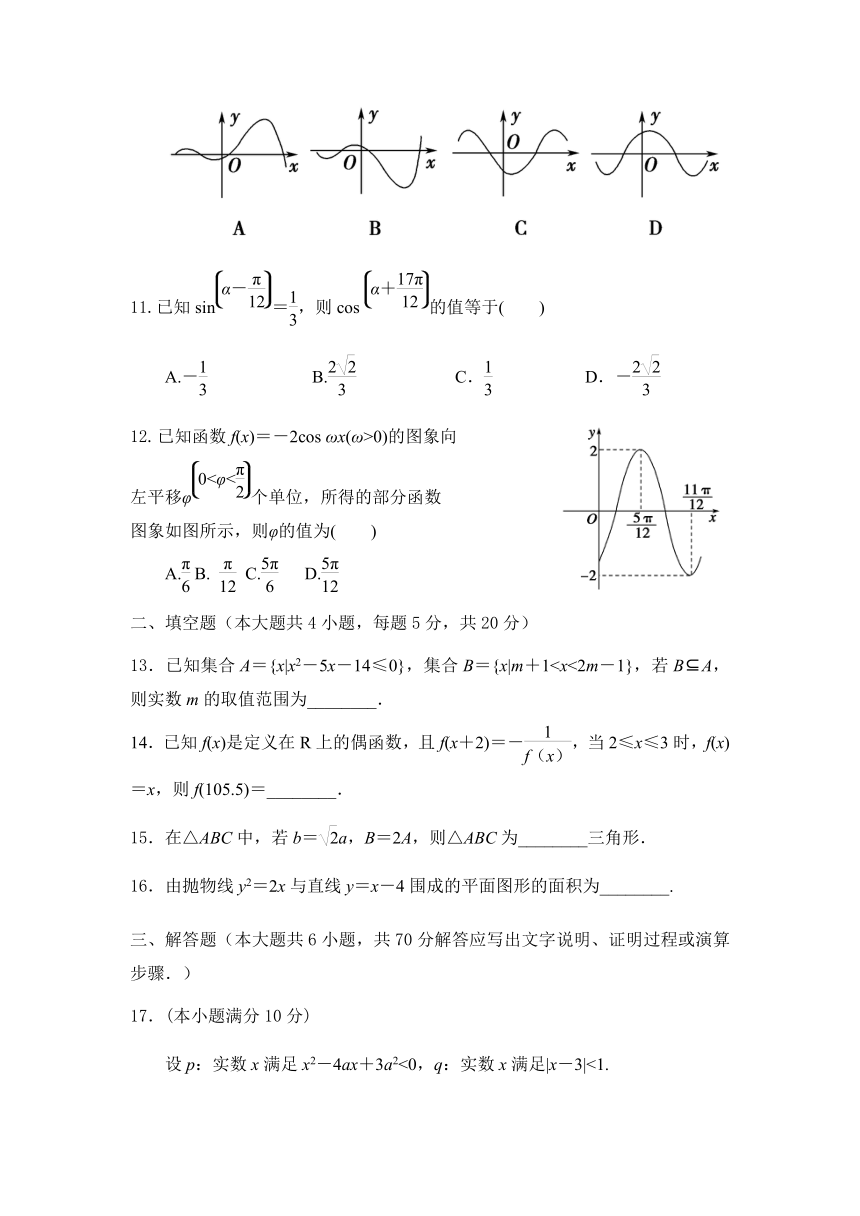 y y y y
O x O x O x O x
A B C D
11.已知 sin(α－π/12)＝1/3，则 cos(α＋17π/12)的值等于( )
A.－1/3 B.2√2/3 C．1/3 D．－2√2/3
12.已知函数 f(x)＝－2cos ωx(ω>0)的图象向
左平移φ(0<φ<π/2)个单位，所得的部分函数
图象如图所示，则φ的值为( )
A.π/6 B. π/12 C.5π/6 D.5π/12
y
2
11π/12
O 5π/12 x
－2
二、填空题（本大题共 4 小题，每题 5 分，共 20 分）
13．已知集合 A＝{x|x²－5x－14≤0}，集合 B＝{x|m＋1<x<2m－1}，若 B⊆A，
则实数 m 的取值范围为________．
14．已知 f(x)是定义在 R 上的偶函数，且 f(x＋2)＝－1/f（x），当 2≤x≤3 时，f(x)
＝x，则 f(105.5)＝________．
15．在△ABC 中，若 b＝√2a，B＝2A，则△ABC 为________三角形．
16．由抛物线 y²＝2x 与直线 y＝x－4 围成的平面图形的面积为________.
三、解答题（本大题共 6 小题，共 70 分解答应写出文字说明、证明过程或演算
步骤．）
17．(本小题满分 10 分)
设 p：实数 x 满足 x²－4ax＋3a²<0，q：实数 x 满足|x－3|<1.